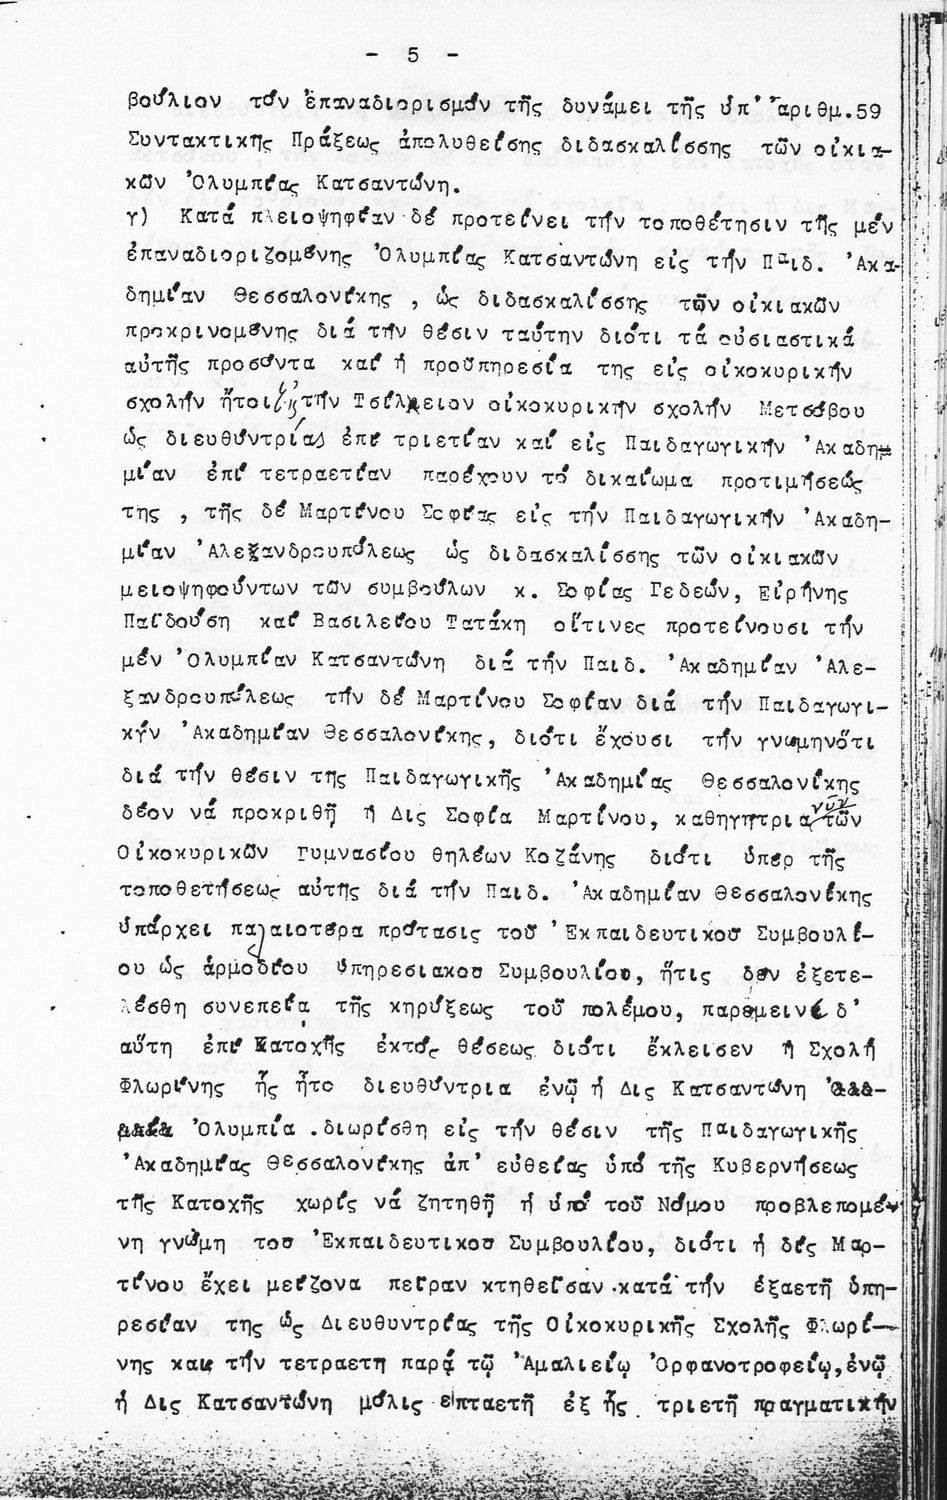 - 5 -
βούλιον τόν ἐπαναδιορισμόν τῆς δυνάμει τῆς ὑπ' ἀριθμ.59
Συντακτικῆς Πράξεως ἀπολυθείσης διδασκαλίσσης τῶν οἰκια-
κῶν Ὀλυμπίας Κατσαντώνη.
γ) Κατά πλειοψηφίαν δέ προτείνει τήν τοποθέτησιν τῆς μέν
ἐπαναδιοριζομένης Ὀλυμπίας Κατσαντώνη εἰς τήν Παιδ. Ἀκα-
δημίαν Θεσσαλονίκης , ὡς διδασκαλίσσης τῶν οἰκιακῶν
προκρινομένης διά τήν θέσιν ταύτην διότι τά οὐσιαστικά
αὐτῆς προσόντα καί ἡ προϋπηρεσία της εἰς οἰκοκυρικήν
σχολήν ἤτοι εἰς τήν Τσίλλειον οἰκοκυρικήν σχολήν Μετσόβου
ὡς διευθύντρίας ἐπί τριετίαν καί εἰς Παιδαγωγικήν Ἀκαδη-
μίαν ἐπί τετραετίαν παρέχουν τό δικαίωμα προτιμήσεώς
της , τῆς δέ Μαρτίνου Σοφίας εἰς τήν Παιδαγωγικήν Ἀκαδη-
μίαν Ἀλεξανδρουπόλεως ὡς διδασκαλίσσης τῶν οἰκιακῶν
μειοψηφούντων τῶν συμβούλων κ. Σοφίας Γεδεών, Εἰρήνης
Παϊδούση καί Βασιλείου Τατάκη οἵτινες προτείνουσι τήν
μέν Ὀλυμπίαν Κατσαντώνη διά τήν Παιδ. Ἀκαδημίαν Ἀλε-
ξανδρουπόλεως τήν δέ Μαρτίνου Σοφίαν διά τήν Παιδαγωγι-
κήν Ἀκαδημίαν Θεσσαλονίκης, διότι ἔχουσι τήν γνώμηνὅτι
διά τήν θέσιν της Παιδαγωγικῆς Ἀκαδημίας Θεσσαλονίκης
δέον νά προκριθῇ ἡ Δις Σοφία Μαρτίνου, καθηγήτρια νῦν τῶν
Οἰκοκυρικῶν Γυμνασίου θηλέων Κοζάνης διότι ὑπέρ τῆς
τοποθετήσεως αὐτῆς διά τήν Παιδ. Ἀκαδημίαν Θεσσαλονίκης
ὑπάρχει παλαιοτέρα πρότασις τοῦ Ἐκπαιδευτικοῦ Συμβουλί-
ου ὡς ἁρμοδίου Ὑπηρεσιακοῦ Συμβουλίου, ἥτις δέν ἐξετε-
λέσθη συνεπεία τῆς κηρύξεως τοῦ πολέμου, παρέμεινέ δ'
αὕτη ἐπί Κατοχῆς ἐκτός θέσεως διότι ἔκλεισεν ἡ Σχολή
Φλωρίνης ἧς ἦτο διευθύντρια ἐνῷ ἡ Δις Κατσαντώνη
Ὀλυμπία .διωρίσθη εἰς τήν θέσιν τῆς Παιδαγωγικῆς
Ἀκαδημίας Θεσσαλονίκης ἀπ' εὐθείας ὑπό τῆς Κυβερνήσεως
τῆς Κατοχῆς χωρίς νά ζητηθῇ ἡ ὑπό τοῦ Νόμου προβλεπομέ-
νη γνώμη τοῦ Ἐκπαιδευτικοῦ Συμβουλίου, διότι ἡ δίς Μαρ-
τίνου ἔχει μείζονα πεῖραν κτηθεῖσαν κατά τήν ἑξαετῆ ὑπη-
ρεσίαν της ὡς Διευθυντρίας τῆς Οἰκοκυρικῆς Σχολῆς Φλωρί-
νης καί τήν τετραετῆ παρά τῷ Ἀμαλιείῳ Ὀρφανοτροφείῳ,ἐνῷ
ἡ Δις Κατσαντώνη μόλις ἑπταετῆ ἐξ ἧς τριετῆ πραγματικήν